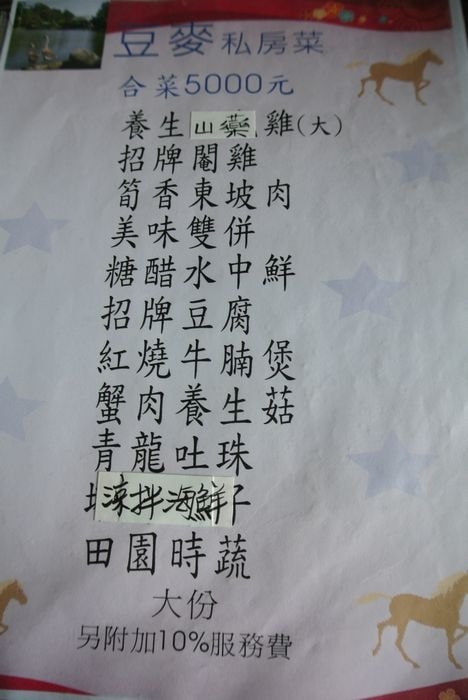 豆麥私房菜
合菜5000元
養生山藥雞(大)
招牌閹雞
筍香東坡肉
美味雙併
糖醋水中鮮
招牌豆腐
紅燒牛腩煲
蟹肉養生菇
青龍吐珠
涼拌海鮮子
田園時蔬
大份
另附加10%服務費